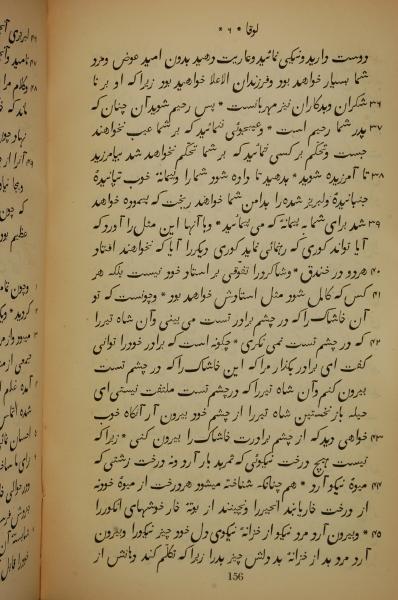 لوقا * ۶ *
دوست دارید ونیکی نمائید وعاریت دهید بدون امید عوض ومزد
شما بسیار خواهد بود وفرزندان الاعلا خواهید بود زیرا که او بر نا
۳۶ شکران وبدکاران نیز مهربانست * پس رحیم شوید آن چنان که
۳۷ پدر شما رحیم است * وعیبجوئی ننمائید که بر شما عیب نخواهند
جست وتحکّم بر کسی ننمائید که بر شما تحکّم نخواهد شد بیامرزید
۳۸ تا آمرزیده شوید * بدهید تا داده شود شما را وپیمانهٔ خوب تپانیدهٔ
جنبانیدهٔ ولبریز شده را بدامن شما خواهند ریخت که بپیموده خواهد
۳۹ شد برای شما به پیمانهٔ که می پیمائید * وبا آنها این مثل را آورد که
آیا تواند کوری که رهنمائی نماید کوری دیکر را آیا که نخواهند افتاد
۴۰ هردو در خندق * وشاکرد را تفوّقی بر استاد خود نیست بلکه هر
۴۱ کس که کامل شود مثل استادش خواهد بود * وچونست که تو
آن خاشاک را که در چشم برادر تست می بینی وآن شاه تیر را
۴۲ که در چشم تست نمی نکری * چکونه است که برادر خود را توانی
کفت ای برادر بکذار مرا که این خاشاک را که در چشم تست
بیرون کنم وآن شاه تیر را که در چشم تست ملتفت نیستی ای
حیله باز نخستین شاه تیر را از چشم خود بیرون آر آنکاه خوب
۴۳ خواهی دید که از چشم برادرت خاشاک را بیرون کنی * زیرا که
نیست هیچ درخت نیکوئی که ثمر بد بار آرد ونه درخت زشتی که
۴۴ میوهٔ نیکو آرد * هم چنانکه شناخته میشود هر درخت از میوهٔ خود نه
از درخت خار یابند انجیر را وچینند از بوتهٔ خار خوشهای انکور را
۴۵ * وبیرون آرد مرد نیکو از خزانهٔ نیکوی دل خود چیز نیکو را وبیرون
آرد مرد بد از خزانهٔ بد دلش چیز بد را زیرا که تکلّم کند دهانش از
156